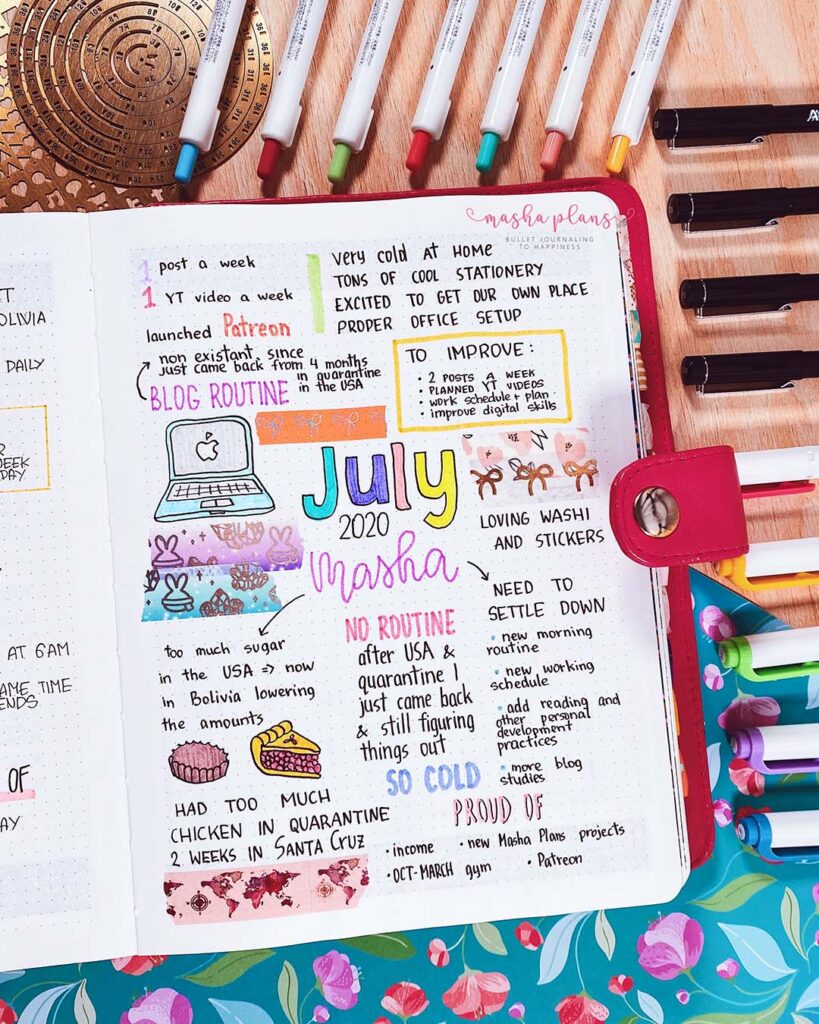 OLIVIA
DAILY
WEEK
DAY
AT 6AM
AME TIME
ENDS
OF
AY
masha plans
BULLET JOURNALING
TO HAPPINESS
1 post a week
1 YT video a week
launched Patreon
Very cold at home
TONS OF COOL STATIONERY
EXCITED TO GET OUR OWN PLACE
PROPER OFFICE SETUP
non existant, since
just came back from 4 months
in quarantine
in the USA
BLOG ROUTINE
TO IMPROVE:
• 2 POSTS A WEEK
• PLANNED YT VIDEOS
• work schedule + plan
• improve digital skills
July
2020
Masha
LOVING WASHI
AND STICKERS
too much sugar
in the USA => now
in Bolivia lowering
the amounts
NO ROUTINE
after USA &
quarantine I
just came back
& still figuring
things out
NEED TO
SETTLE DOWN
• new morning
routine
• new working
schedule
• add reading and
other personal
development
practices
• more blog
studies
SO COLD
HAD TOO MUCH
CHICKEN IN QUARANTINE
2 WEEKS IN SANTA CRUZ
PROUD OF
• income • new Masha Plans projects
• OCT-MARCH gym • Patreon